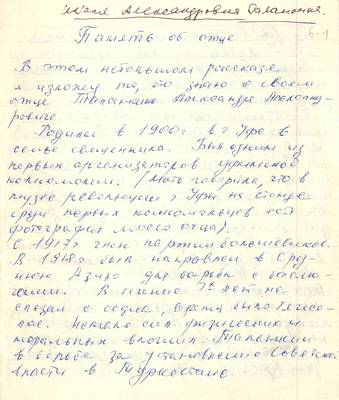 Александровна
6-1
Память об отце
В этом небольшом рассказе
я изложу то, что знаю о своем
отце Александре Александ-
ровиче.
Родился в 1900г. в г. Уфе в
семье священника. Был одним из
первых организаторов уфимского
комсомола. (Мать говорила, что в
музее революции г Уфы на стенде
среди первых комсомольцев есть
фотография моего отца).
С 1917г. член партии большевиков.
В 1918г был направлен в Сред-
нюю Азию для борьбы с басма-
чами. В течение лет не
слезал с седла, время было тяжело-
е. Немало сил физических и
моральных вложил
в борьбе за установление Советской
власти в Туркестане.